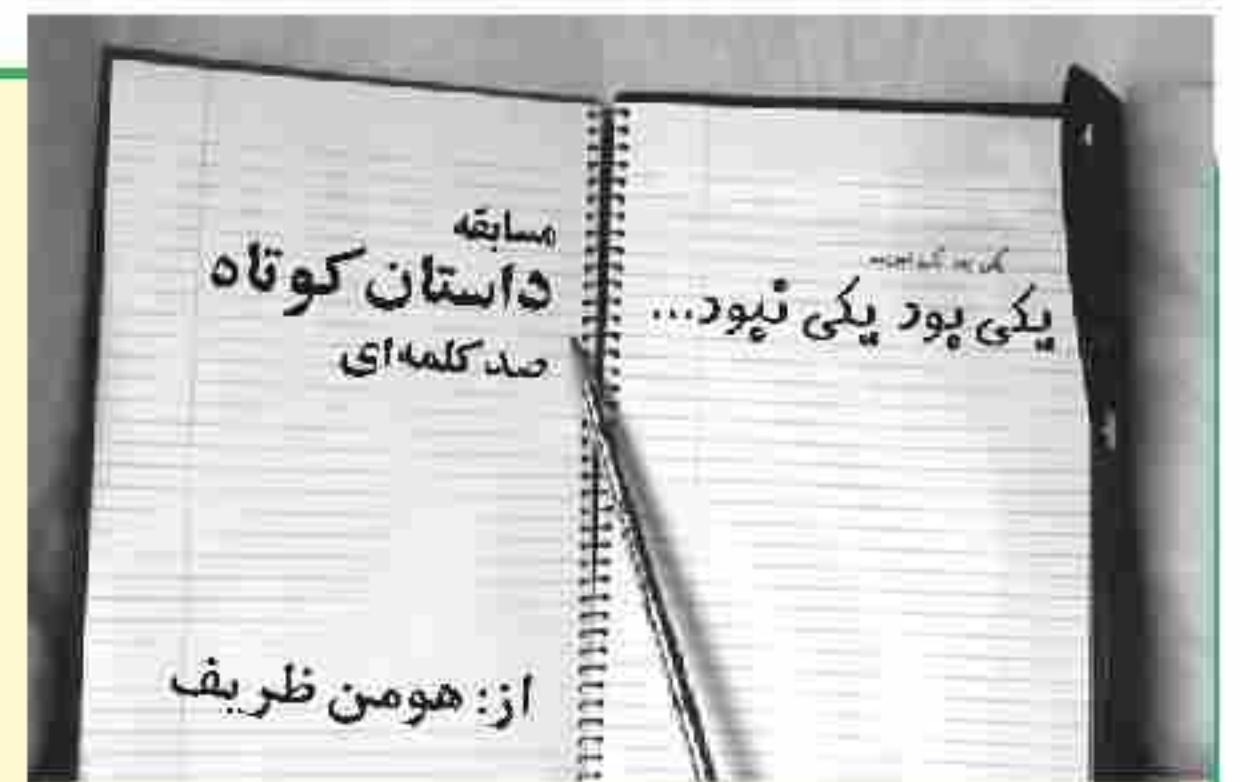 یکی بود یکی نبود...
مسابقه
داستان کوتاه
صد کلمه‌ای
از: هومن ظریف